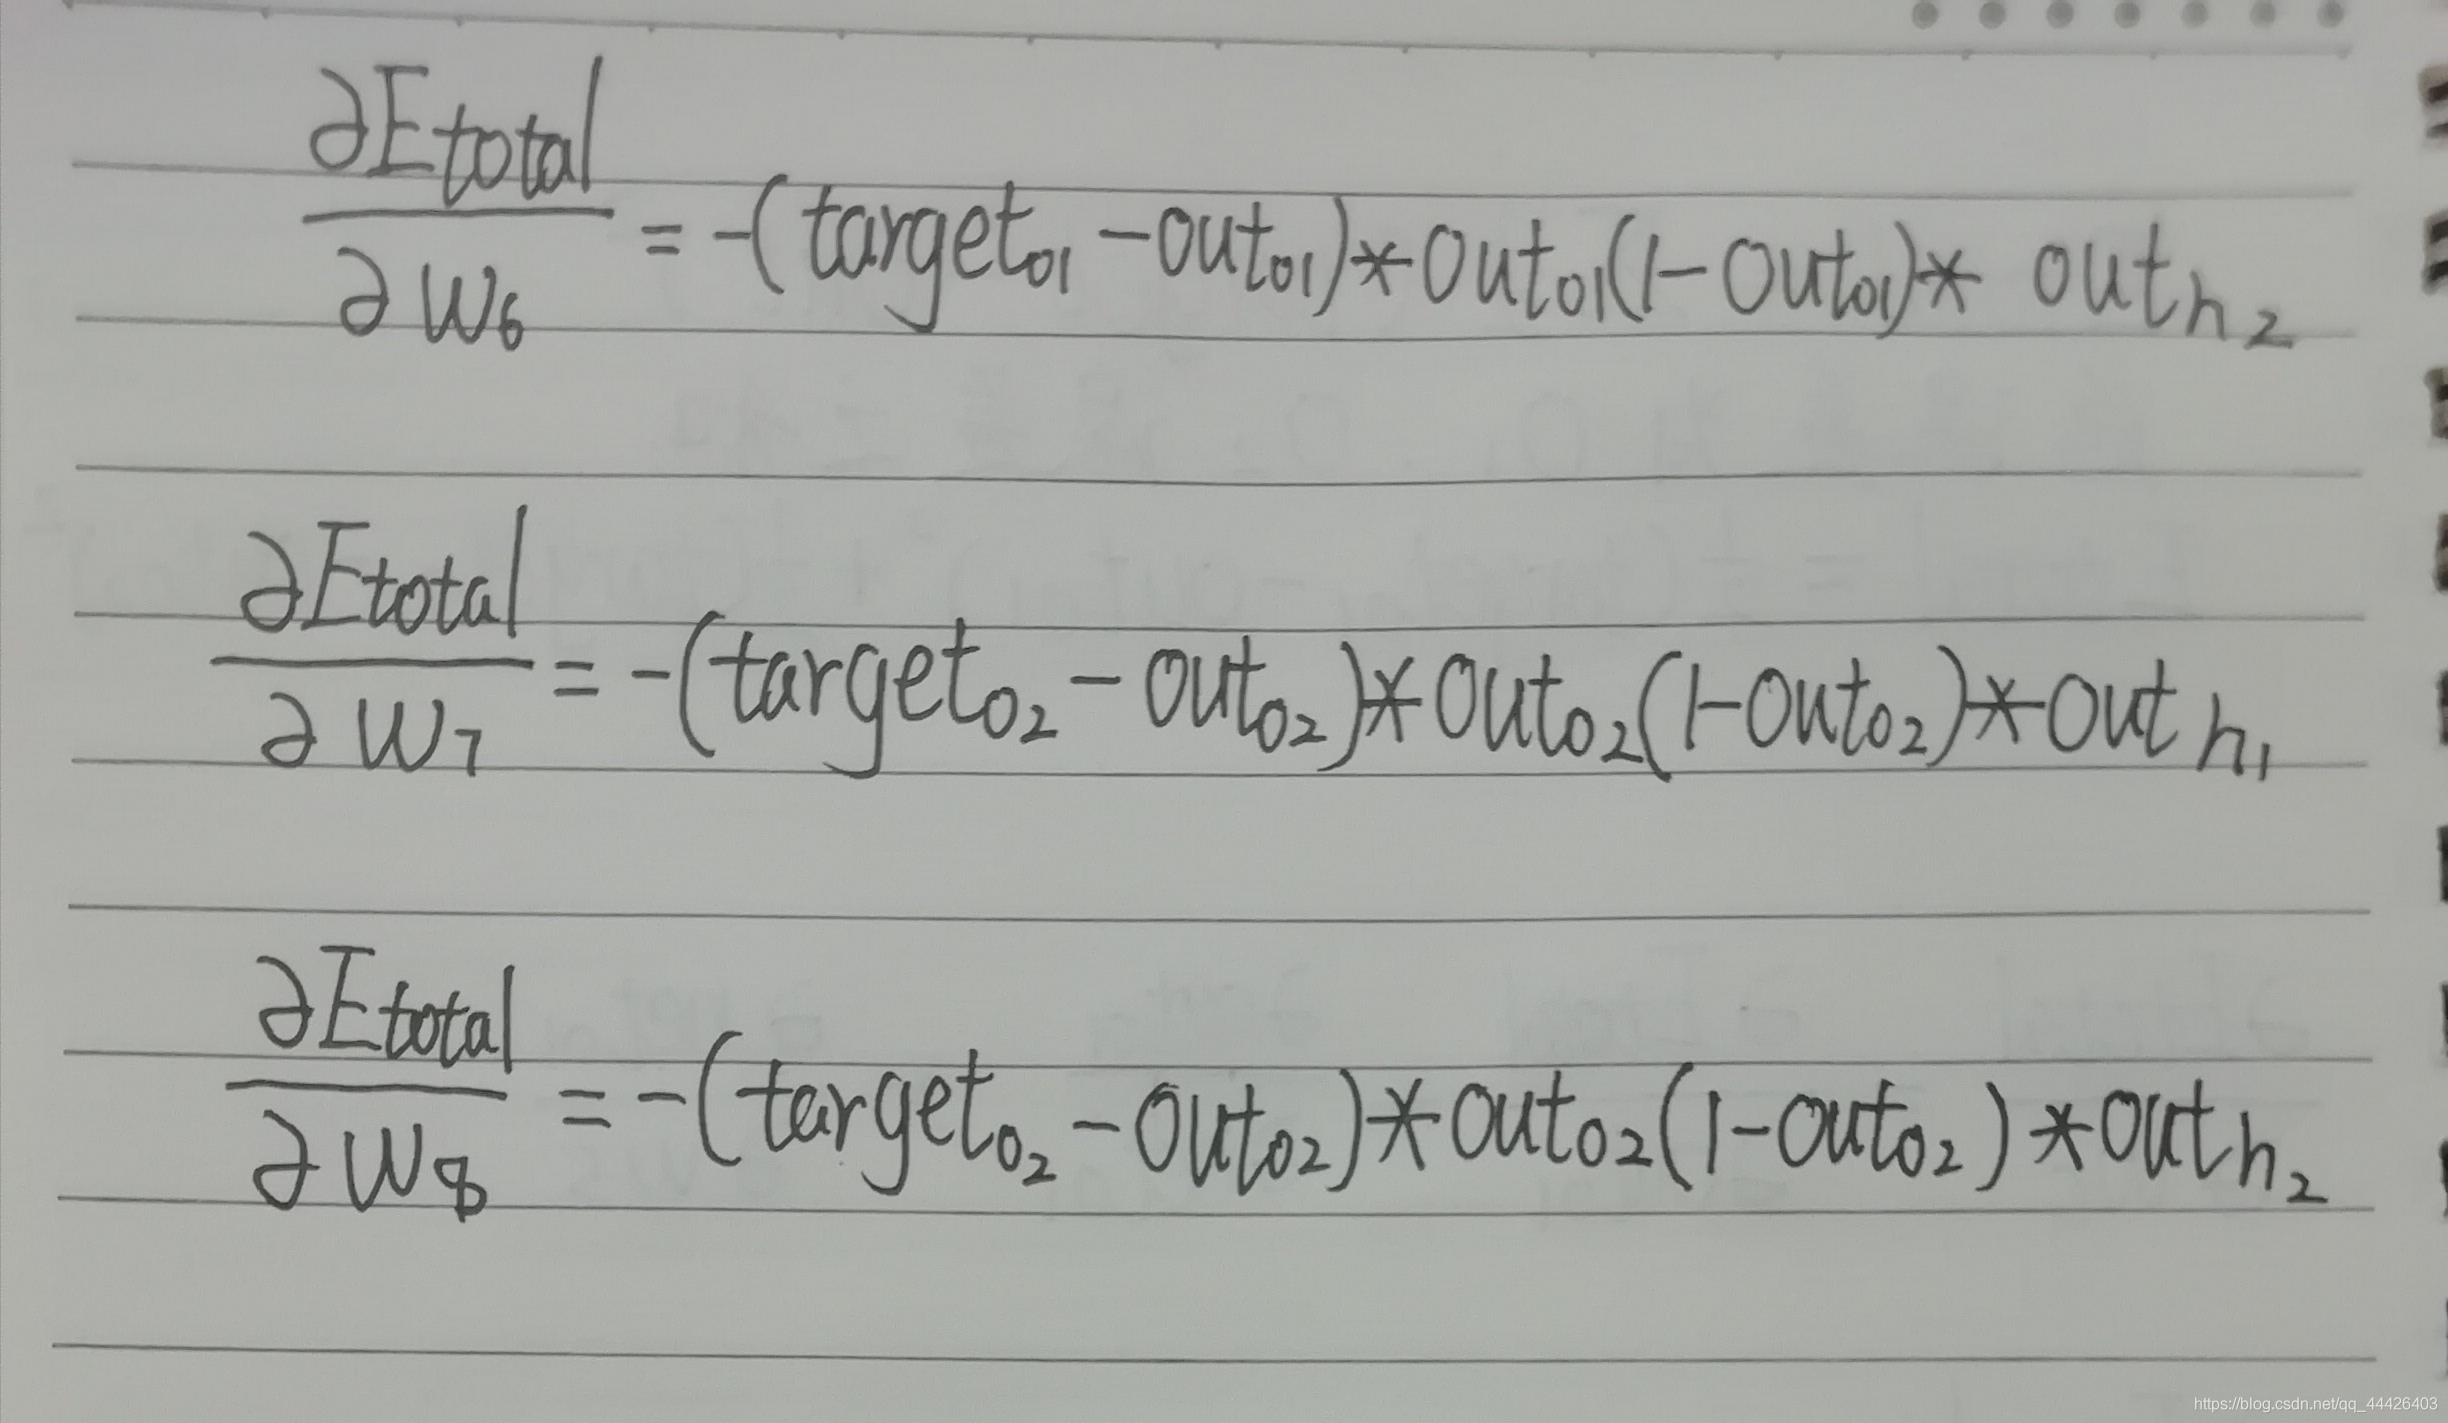 ∂Etotal/∂w₆ = -(target₀₁ - out₀₁)*out₀₁(1-out₀₁)* out h₂
∂Etotal/∂w₇ = -(target₀₂ - out₀₂)*out₀₂(1-out₀₂)*out h₁
∂Etotal/∂w₈ = -(target₀₂ - out₀₂)*out₀₂(1-out₀₂)*out h₂
https://blog.csdn.net/qq_44426403